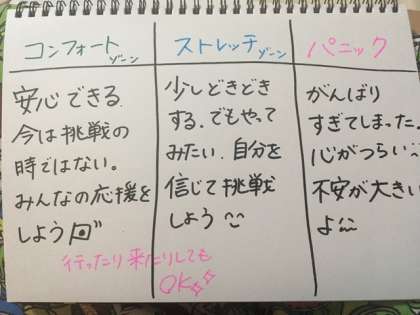 コンフォートゾーン
安心できる
今は挑戦の
時ではない。
みんなの応援を
しよう
ストレッチゾーン
少しどきどき
する。でもやって
みたい。自分を
信じて挑戦
しよう
パニック
がんばり
すぎてしまった。
心がつらい
不安が大きい
よ
行ったり来たりしても
OK